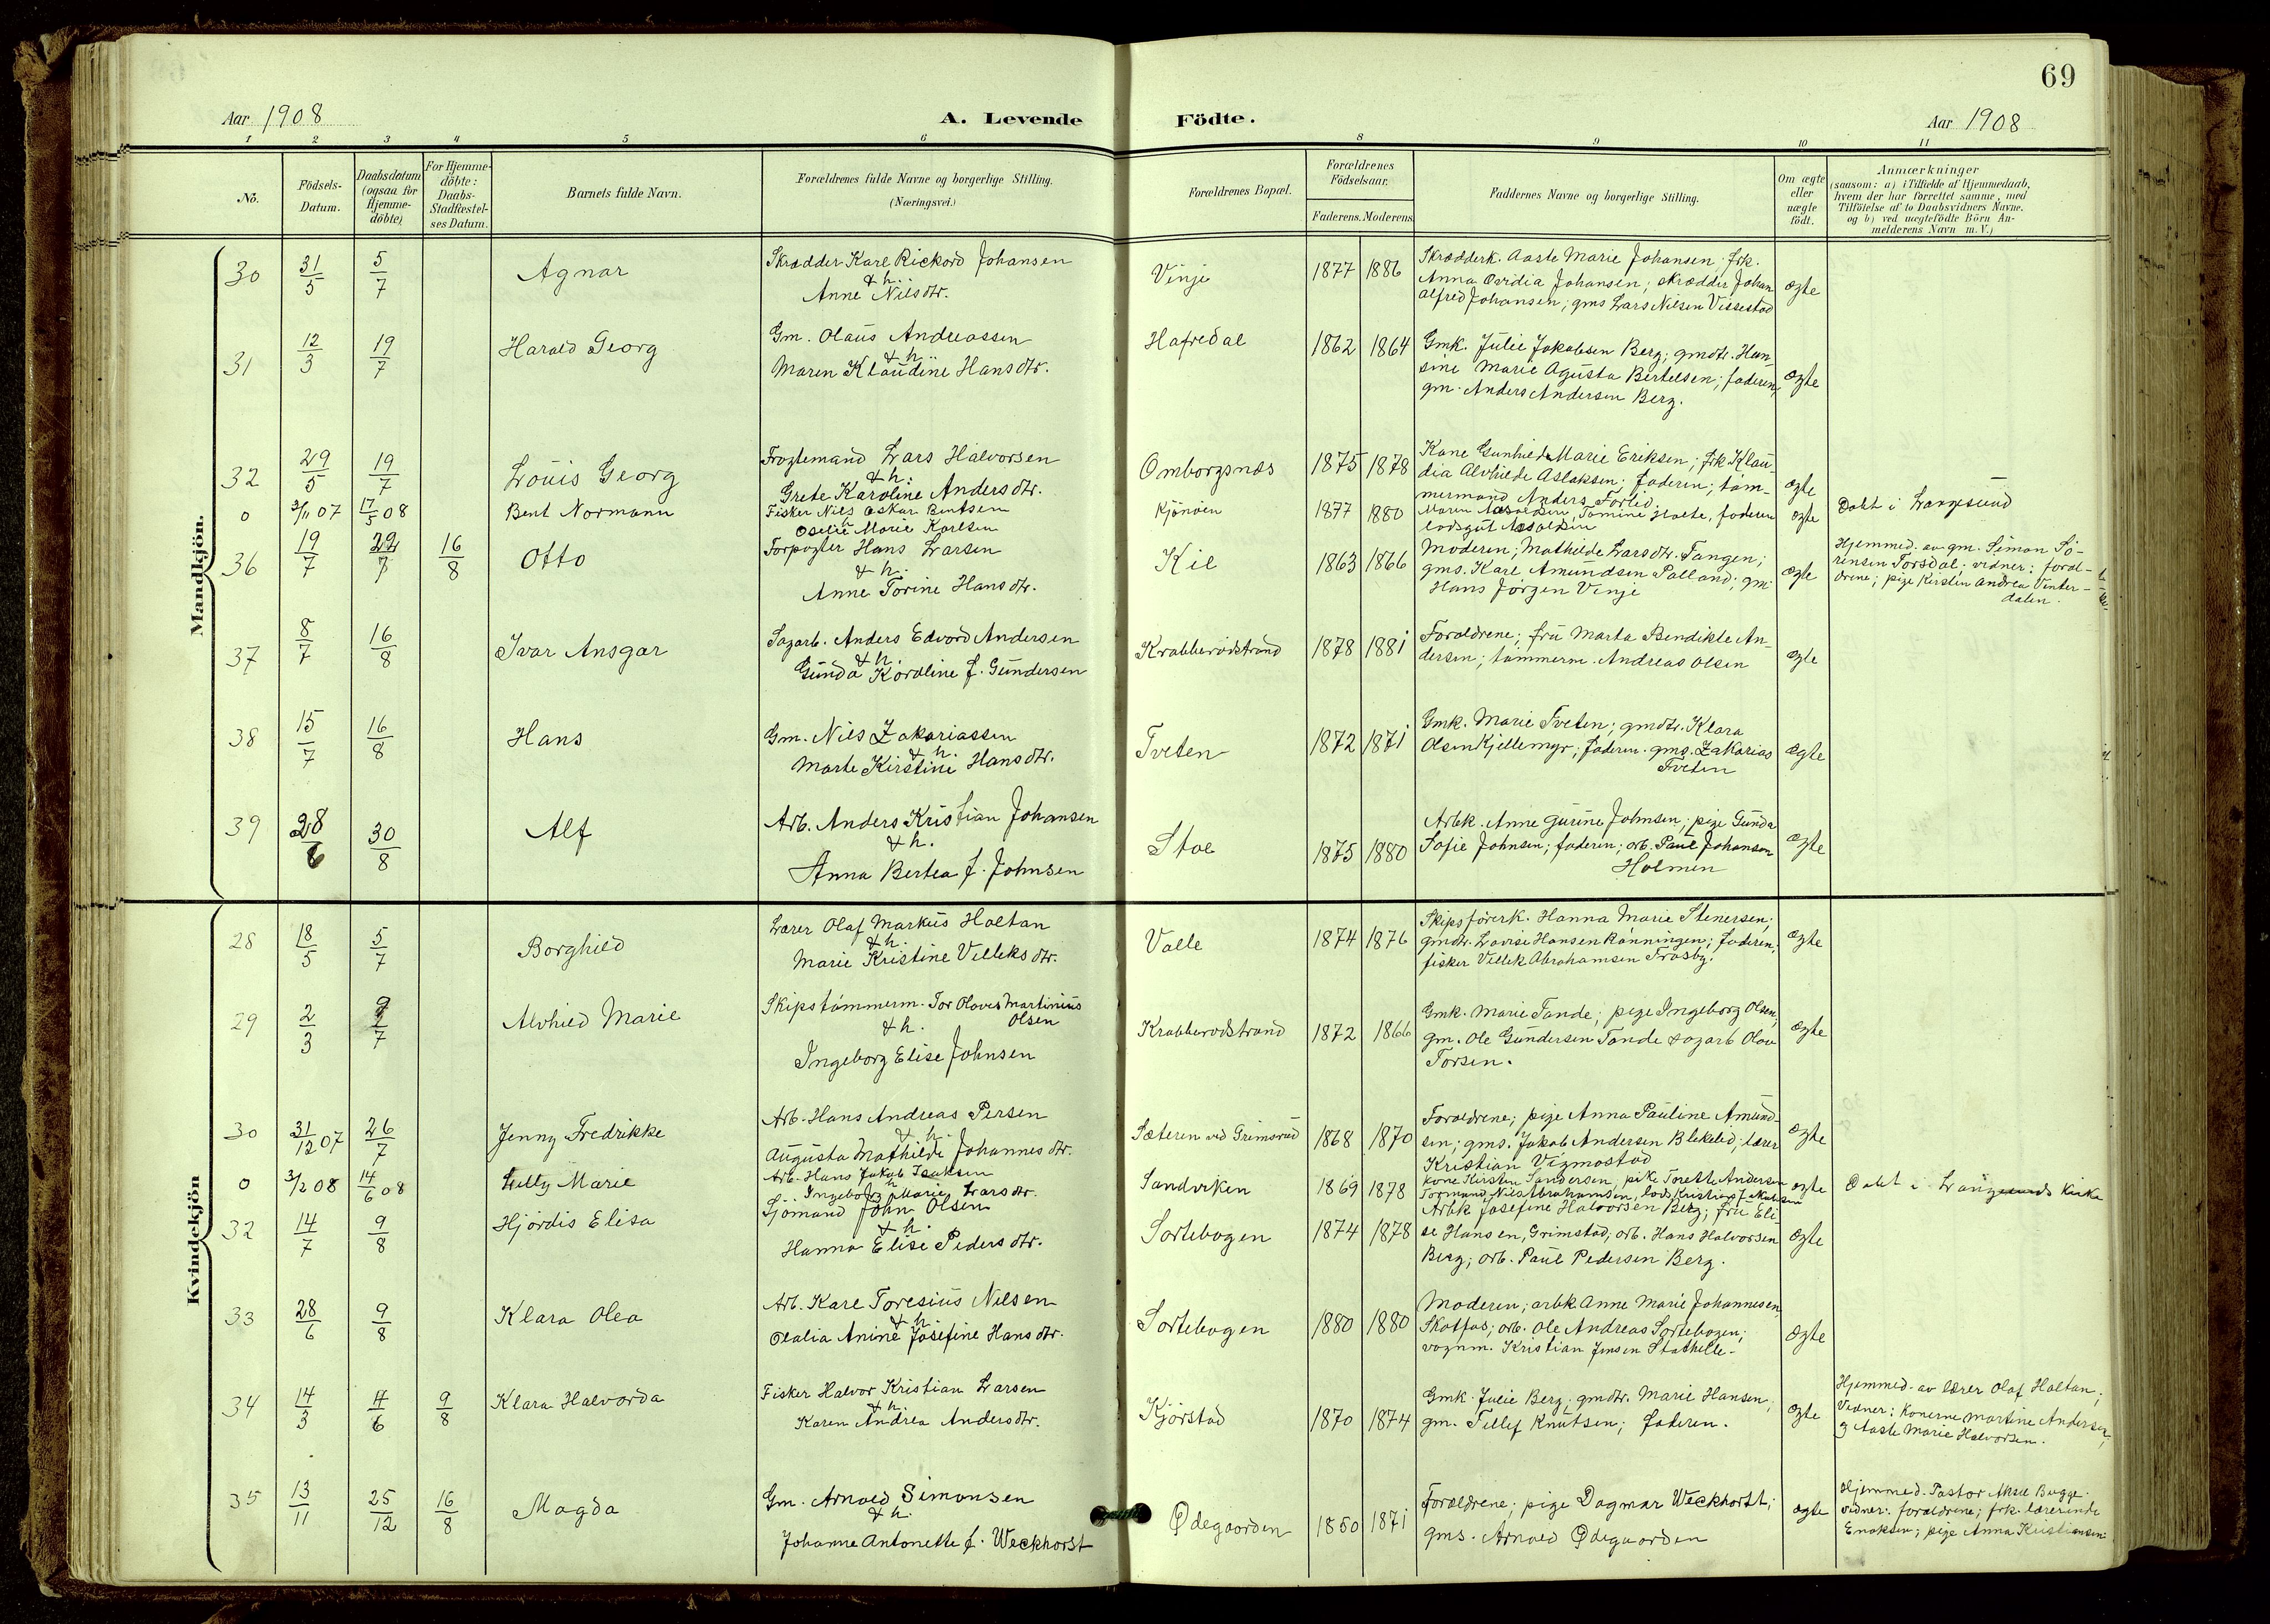 69
Aar 1908
A. Levende
Födte.
Aar 1908
1 2 3 4 5 6 8 9 10 11
No.
Födsels-
Datum.
Daabsdatum
(ogsaa for
Hjemme-
döbte)
For Hjemme-
döbte:
Daabs-
Stadfæstel-
ses Datum.
Barnets fulde Navn.
Forældrenes fulde Navne og borgerlige Stilling.
(Næringsvei.)
Forældrenes Bopæl.
Forældrenes
Födselsaar.
Faderens. Moderens.
Faddernes Navne og borgerlige Stilling.
Om ægte
eller
uægte
födt.
Anmærkninger
(saasom: a) i Tilfælde af Hjemmedaab,
hvem der har forrettet samme, med
Tilföielse af to Daabsvidners Navne.
og b) ved uægtefödte Börn An-
melderens Navn m.V.)
Mandkjön.
30 31/5 5/7 Agnar
Skrædder Karl Rickard Johansen
& h.
Anne Nilsdtr.
Vinje 1877 1886
Skrædderk. Aaste Marie Johansen; frk.
Anna Ovidia Johansen; skrædder Johan
Alfred Johansen; gms Lars Nilsen Vissestad
ægte
31 12/3 19/7 Harald Georg
Gm. Olaus Andreassen
& h.
Maren Klaudine Hansdtr.
Hafredal 1862 1864
Gmk. Julie Jakobsen Berg; gmdtr. Han-
sine Marie Agusta Bertelsen; faderen;
gm. Anders Andersen Berg.
ægte
32 29/5 19/7 Louis Georg
Frogtemand Lars Halvorsen
& h.
Grete Karoline Andersdtr.
Omborgsnæs 1875 1878
Kone Gunhild Marie Eriksen; frk Klau-
dia Alvhilde Aslaksen; faderen; tøm-
mermand Anders Forlid.
ægte
0 3/11 07 17/5 08 Bent Normann
Fisker Nils Oskar Bentsen
h
Oselie Marie Karlsen
Kjønøen 1877 1880
Maren Tomine Halte, faderen
lodsgut
ægte
Døbt i Langesund
36 19/7 22/7 16/8 Otto
Forpagter Hans Larsen
& h.
Anne Torine Hansdtr.
Kil 1863 1866
Moderen; Mathilde Larsdtr. Tangen;
gms. Karl Amundsen Palland; gm
Hans Jørgen Vinje
ægte
Hjemmed. av gm. Simon Sö-
rensen Torsdal; vidner: foræl-
drene; pige Kirstin Andrea Vinter-
dalen.
37 8/7 16/8 Ivar Ansgar
Sagarb. Anders Edvard Andersen
& h.
Gunda Karoline f. Gundersen
Krabberødstrand 1878 1881
Forældrene; fru Marta Bendikte An-
dersen; tømmerm. Andreas Olsen
ægte
38 15/7 16/8 Hans
Gm. Nils Zakariassen
& h.
Marte Kirstine Hansdtr.
Tveten 1872 1871
Gmk. Marie Tveten; gmdtr. Klara
Olsen Kjellemyr; faderen. gms. Zakarias
Tveten
ægte
39 28/6 30/8 Alf
Arb. Anders Kristian Johansen
& h.
Anna Bertea f. Johnsen
Stoe 1875 1880
Arbk. Anne Gurine Johnsen; pige Gunda
Sofie Johnsen; faderen; arb. Paul Johansen
Holmen
ægte
Kvindekjön
28 18/5 5/7 Borghild
Lærer Olaf Markus Haltan
& h.
Marie Kristine Velleksdtr.
Valle 1874 1876
Skipsførerk. Hanna Marie Stenersen;
gmdtr. Lovise Hansen Rønningen; faderen;
fisker Vellek Abrahamsen Trosby.
ægte
29 2/3 Alvhild Marie
Skipstømmerm. Tor Olaves Martinius
Olsen
& h.
Ingeborg Elise Johnsen
Krabberødstrand 1872 1866
Gmk. Marie Tande; pige Ingeborg Olsen,
gm. Ole Gundersen Tande sagarb Olav
Torsen.
ægte
30 31/12 07 26/7 Jenny Fredrikke
Arb. Hans Andreas Persen
& h.
Augusta Mathilde Johannesdtr.
Sæteren ved Grimsrud 1868 1870
Forældrene; pige Anna Pauline Amund-
sen; gms. Jakob Andersen Blekelid; lærer
Kristian Vigmostad
ægte
0 3/2 08 14/6 08 Lilly Marie
Arb. Hans Jakob Isaksen
h
Ingeborg Marie Larsdtr.
Sandviken 1869 1878
kone Kirsten Sandersen, pike Torette Andersen
Tormand Nils Abrahamsen, lods Kristian
ægte
Døbt i Langesunds kirke
32 14/7 9/8 Hjördis Elisa
Sjömand John Olsen
& h.
Hanna Elise Pedersdtr.
Sortebogen 1874 1878
Arbk Josefine Halvorsen Berg; fru Eli-
se Hansen, Grimstad; arb. Hans Halvorsen
Berg; arb. Paul Pedersen Berg.
ægte
33 28/6 9/8 Klara Olea
Arb. Karl Toresius Nilsen
& h.
Olalia Anine Josefine Hansdtr.
Sortebogen 1880 1880
Moderen; arbk Anne Marie Johannesen,
Skotfos; arb. Ole Andreas Sortebogen;
vognm. Kristian Jensen Stathelle.
ægte
34 14/3 4/6 9/8 Klara Halvorda
Fisker Halvor Kristian Larsen
& h.
Karen Andrea Andersdtr.
Kjørstad 1870 1874
Gmk Julie Berg; gmdtr. Marie Hansen;
gm. Tellef Knutsen; faderen.
ægte
Hjemmed. av lærer Olaf Haltan;
Vidner: Konerne Martine Andersen,
og Aaste Marie Halvorsen.
35 13/11 25/12 16/8 Magda
Gm. Arnold Simonsen
& h.
Johanne Antonette f. Weckhorst
Ødegaarden 1850 1871
Forældrene; pige Dagmar Weckhorst;
gms. Arnold Ødegaarden
ægte
Hjemmed. Pastor Bugge.
vidner: forældrene; frk. lærerinde
Enoksen; pige Anna Kristiansen